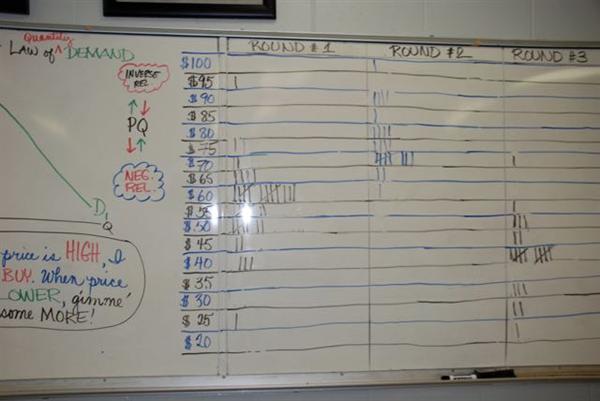 Quantity
LAW of ^ DEMAND
INVERSE
REL
PQ
NEG.
REL.
D,
Q
price is HIGH, I
BUY. When price
OWER, gimme'
some MORE!
ROUND #1
ROUND #2
ROUND #3
$100
$95
$90
$85
$80
$75
$70
$65
$60
$55
$50
$45
$40
$35
$30
$25
$20